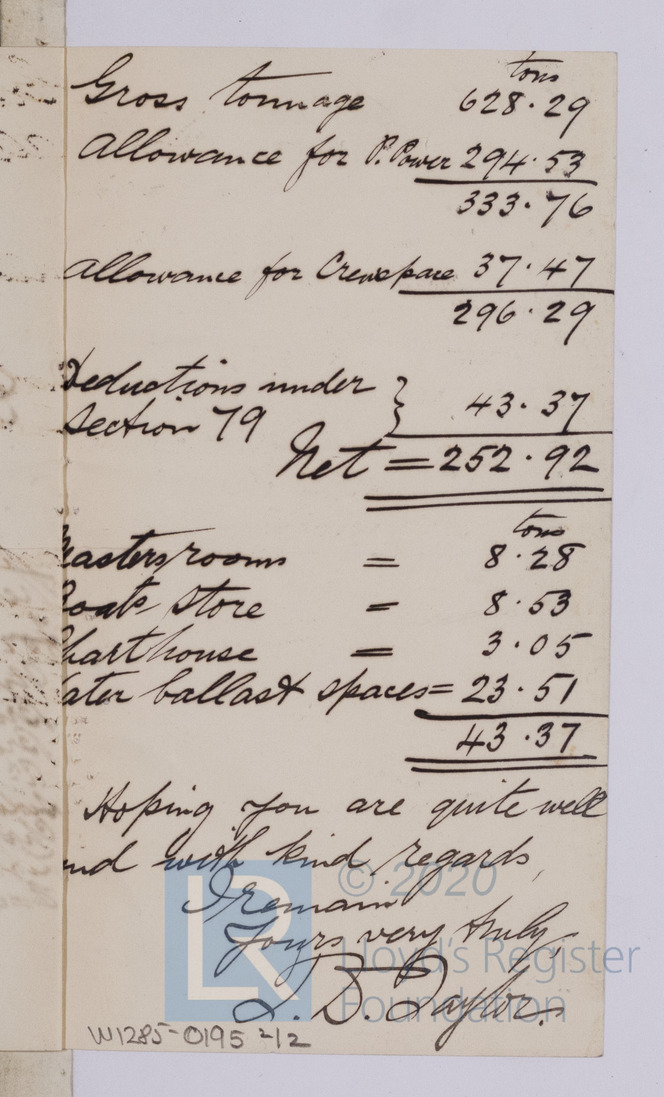 tons
Gross tonnage 628.29
Allowance for P. Power 294.53
333.76
Allowance for Crewspace 37.47
296.29
Deductions under } 43.37
Section 79
Net = 252.92
tons
masters rooms = 8.28
Boats store = 8.53
Charthouse = 3.05
ater ballast spaces = 23.51
43.37
Hoping you are quite well
and with kind regards,
I remain
Yours very truly,
Taylor.
© 2020
LR
Lloyd's Register
Foundation
W1285-0195 2/2